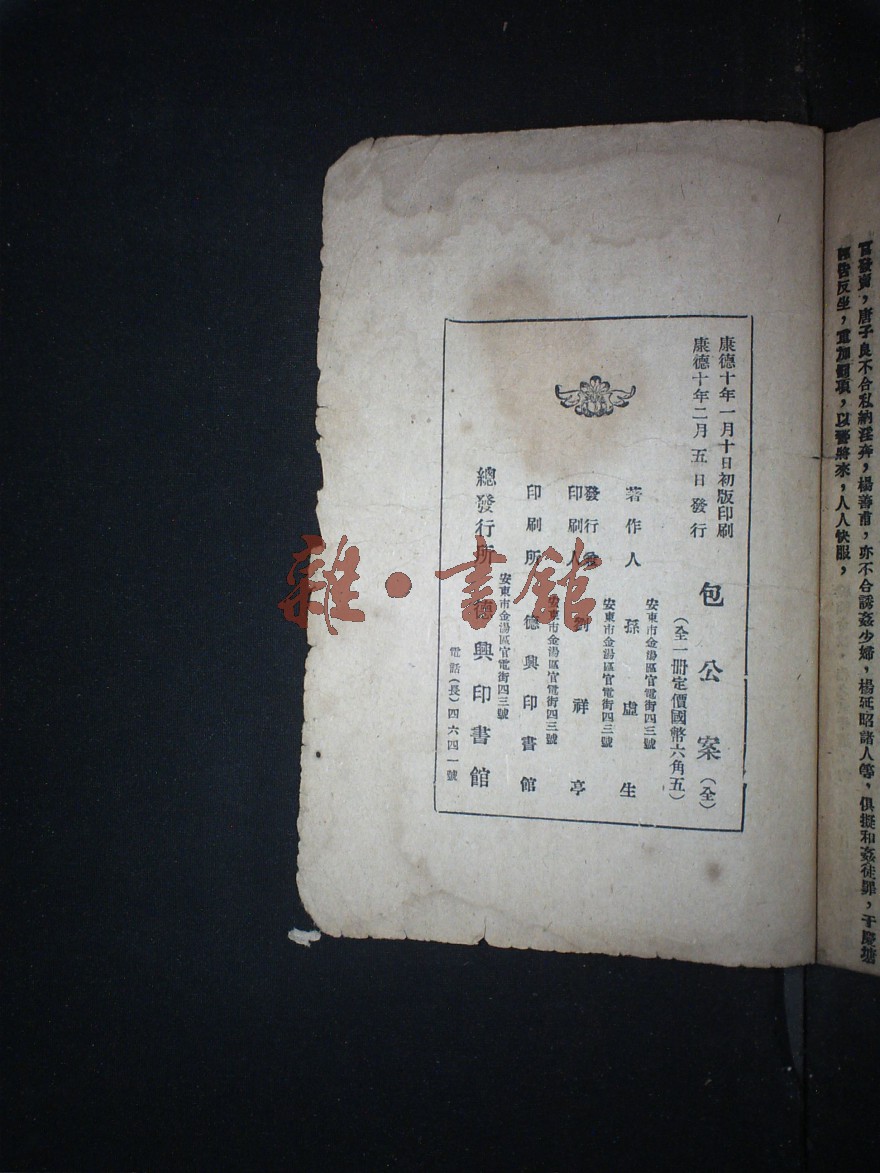 官發賣，唐子良不合私納淫奔，楊善甫，亦不合誘姦少婦，楊延昭諸人等，俱擬和姦徒罪，于慶塘
皆反坐，重加罰項，以警將來，人人快服，
康德十年一月十日初版印刷
康德十年二月五日發行
包公案（全）
（全一冊定價國幣六角五）
安東市金湯區官電街四三號
著作人 孫虛生
安東市金湯區官電街四三號
發行者
印刷人 劉祥亭
安東市金湯區官電街四三號
印刷所 德興印書館
安東市金湯區官電街四三號
總發行所 德興印書館
電話（長）四六四一號
雜·書館